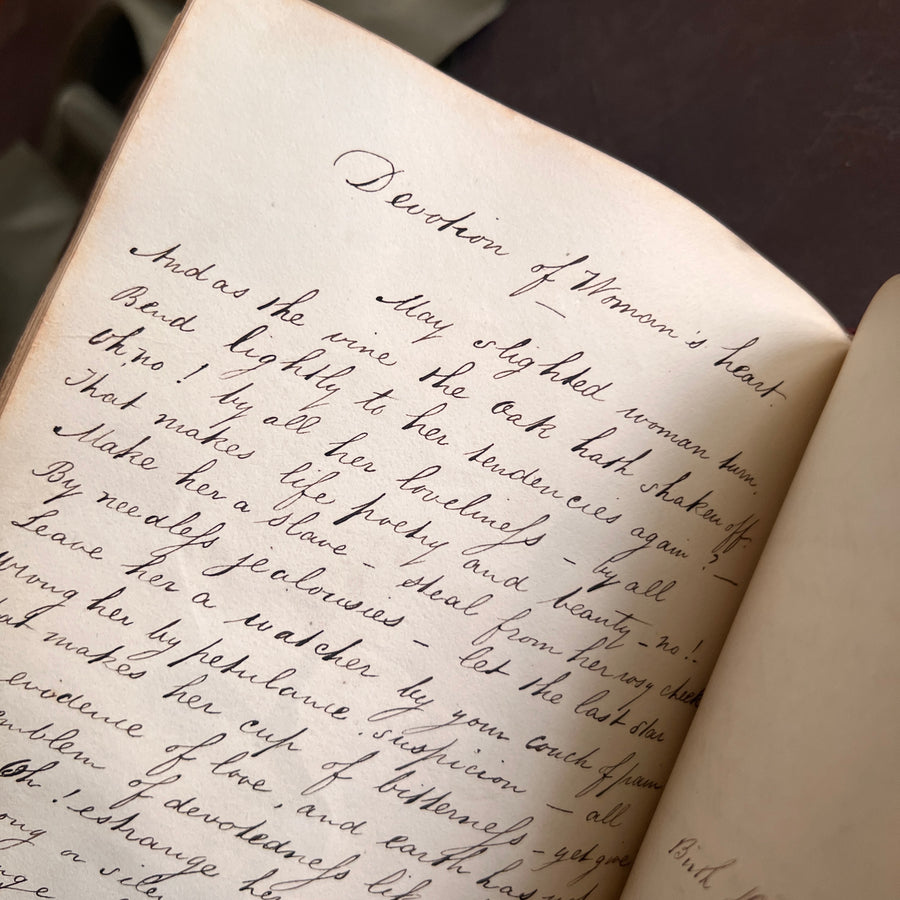 Devotion of Woman's heart.
May slighted woman turn,
And as the vine the oak hath shaken off.
Bend lightly to her tendencies again? —
Oh, no! by all her loveliness — by all
That makes life poetry and beauty — no!
Make her a slave — steal from her rosy cheek
By needless jealousies — let the last star
Leave her a watcher by your couch of pain
Wrong her by petulance, suspicion — all
makes her cup of bitterness — yet give
evidence of love, and earth has not
emblem of devotedness like
Oh! estrange her
a
Birth